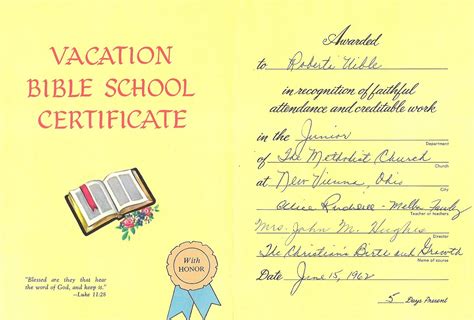 VACATION
BIBLE SCHOOL
CERTIFICATE
With
HONOR
"Blessed are they that hear
the word of God, and keep it."
—Luke 11:28
Awarded
to Roberti Uible
in recognition of faithful
attendance and creditable work
in the Junior
Department
of The Methodist Church
Church
at New Vienna, Ohio
Alice
Teacher or teachers
Mrs. John M. Hughes
Director
The Christian's Birth and Growth
Name of course
Date June 15, 1962
5
Days Present